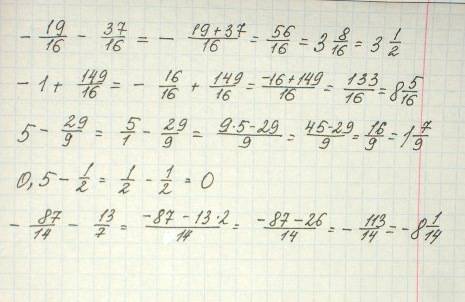 - 19/16 - 37/16 = - (19+37)/16 = 56/16 = 3 8/16 = 3 1/2
- 1 + 149/16 = - 16/16 + 149/16 = (-16+149)/16 = 133/16 = 8 5/16
5 - 29/9 = 5/1 - 29/9 = (9·5-29)/9 = (45-29)/9 = 16/9 = 1 7/9
0,5 - 1/2 = 1/2 - 1/2 = 0
- 87/14 - 13/7 = (-87-13·2)/14 = (-87-26)/14 = - 113/14 = - 8 1/14